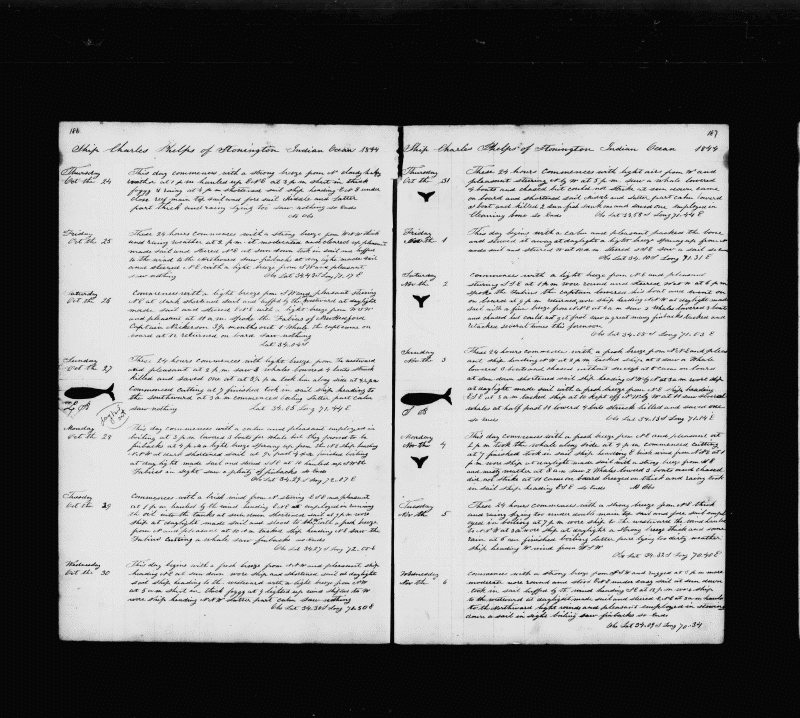 186
Ship Charles Phelps of Stonington Indian Ocean 1844
Thursday Oct the 24
This day commences with a strong breeze from N cloudy
weather at 1 p m hauled up E S E at 3 p m shut in thick
foggy & rainy at 4 p m shortened sail ship heading E S E under
close reef main top sail and fore sail Middle and Latter
part thick and rainy lying too saw nothing so ends
No Obs
Friday Oct the 25
These 24 hours commences with a strong breeze from
and rainy weather at 2 p m it moderated and cleared up pleasant
made sail and steered N E at sun down took in sail and luffed
to the wind to the westward saw finbacks at day light made sail
and steered N E with a light breeze from N W and pleasant
saw nothing Obs Lat 34.43 S Long
Saturday Oct the 26
Commences with a light breeze from N W and pleasant steering
N E at dark shortened sail and luffed by the westward at daylight
made sail and steered E N E with light breeze from W S W
and pleasant at 11 a m Spoke the Fabius of New Bedford
Captain Nickerson months out 1 whale the capt came on
board at 12 returned on board saw nothing
Lat 34.04 S
Sunday Oct the 27
These 24 hours commences with light breeze from the westward
and pleasant at 2 p m saw whales lowered 4 boats struck
killed and saved one at 3 1/2 p m took him along side at
commenced cutting at 7 finished took in sail ship heading to
the southward at 3 a m commenced boiling Latter part calm
saw nothing Lat 34.05 Long 71.44 E
Monday Oct the 28
This day commences with a calm and pleasant employed in
boiling at 3 p m lowered 3 boats for whale but they proved to be
finbacks at 4 p m a light breeze sprung up from the N E ship heading
N N W at dark shortened sail at 1/2 past 9 p m finished boiling
at day light made sail and steered S E at 10 hauled up N W the
Fabius in sight saw a plenty of finbacks so ends
Obs Lat 34.29 S Long 72.07 E
Tuesday Oct the 29
Commences with a brisk wind from N steering E S E and pleasant
at 1 p m hauled by the wind heading E N E employed in running
the oil into the tanks at sun down shortened sail at 7 p m wore
ship at daylight made sail and stood to the with a fresh breeze
from N and pleasant at 10 A m tacked ship heading N E saw the
Fabius cutting a whale saw finbacks so ends
Obs Lat 34.27 S Long
Wednesday Oct the 30
This day begins with a fresh breeze from N N W and pleasant ship
heading N E at sun down wore ship and shortened sail at daylight
sail ship heading to the westward with a light breeze from N W
at 8 a m shut in thick foggy at 9 lighted up wind shifted to W
wore ship heading N N W Latter part calm saw nothing
Obs Lat 34.30 S Long 72.50 E
187
Ship Charles Phelps of Stonington Indian Ocean 1844
Thursday Oct the 31
These 24 hours commences with light airs from W and
pleasant steering N by W at 5 p m saw a whale lowered
4 boats and chased but could not strike at sun down came
on board and shortened sail Middle and Latter part calm lowered
a boat and killed 2 sun fish took in and saved one employed in
cleaning bone so ends Obs Lat 33.58 S Long 71.44 E
Friday Nov the 1
This day begins with a calm and pleasant packed the bone
and stowed it away at daylight a light breeze sprung up from N
made sail and steered W at 10 a m steered N E saw a sail so ends
Obs Lat 34.10 S Long 71.31 E
Saturday Nov the 2
commences with a light breeze from N E and pleasant
steering S S E at 1 p m wore round and steered W N W at 6 p m
spoke the Fabius the captain lowered his boat and went on
on board at 9 p m returned wore ship heading N N W at daylight made
sail with a fine breeze from N N E at 6 a m saw 2 whales lowered 3 boats
and chased but could not strike saw a great many finbacks tacked and
retacked several times this forenoon
Obs Lat 34.05 S Long 71.03 E
Sunday Nov the 3
These 24 hours commences with a fresh breeze from N N E and pleasant
sail ship heading N W at 2 p m tacked ship at 3 saw a whale
lowered 3 boats and chased without success at 5 came on board
at sun down shortened sail ship heading N W by N at 3 a m wore ship
at daylight made sail with a fresh breeze from N E ship heading
E S E at 9 a m tacked ship at 10 kept off N W by W at 11 saw several
whales at half past 11 lowered 4 boats struck killed and saved one
so ends Obs Lat 34.13 S Long 71.14 E
Monday Nov the 4
This day commences with a fresh breeze from N E and pleasant at
2 p m took the whale along side at 4 p m commenced cutting
at 7 finished took in sail ship heading E brisk wind from N N E at 1
p m wore ship at daylight made sail with a strong breeze from N E
and misty weather at 8 a m saw 2 whales lowered 3 boats and chased
did not strike at 11 came on board breezed on thick and rainy took
in sail ship heading E S E so ends No Obs
Tuesday Nov the 5
These 24 hours commences with a strong breeze from N E thick
and rainy lying too under double reef main top sail and fore sail employed
in boiling at 7 p m wore ship to the westward the wind hauled
to N N W at 3 a m wore ship at daylight a strong breeze thick and some
rain at 8 a m finished boiling Latter part lying too dirty weather
ship heading W wind from N N W
Obs Lat 34.32 S Long 70.40 E
Wednesday Nov the 6
commences with a strong breeze from N W and rugged at 5 p m more
moderate wore round and stood E S E under easy sail at sun down
took in sail luffed by the wind heading N E at 12 p m wore ship
to the westward at daylight made sail and steered E N E at 8 a m hauled
to the northward light winds and pleasant employed in stowing
down a sail in sight boiling saw finbacks so ends
Obs Lat 34.09 S Long 70.34